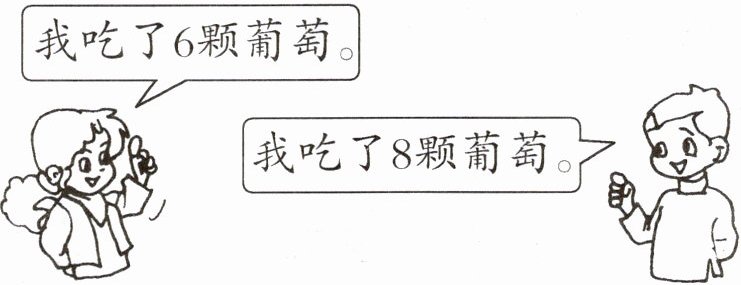 我吃了6颗葡萄。
我吃了8颗葡萄。